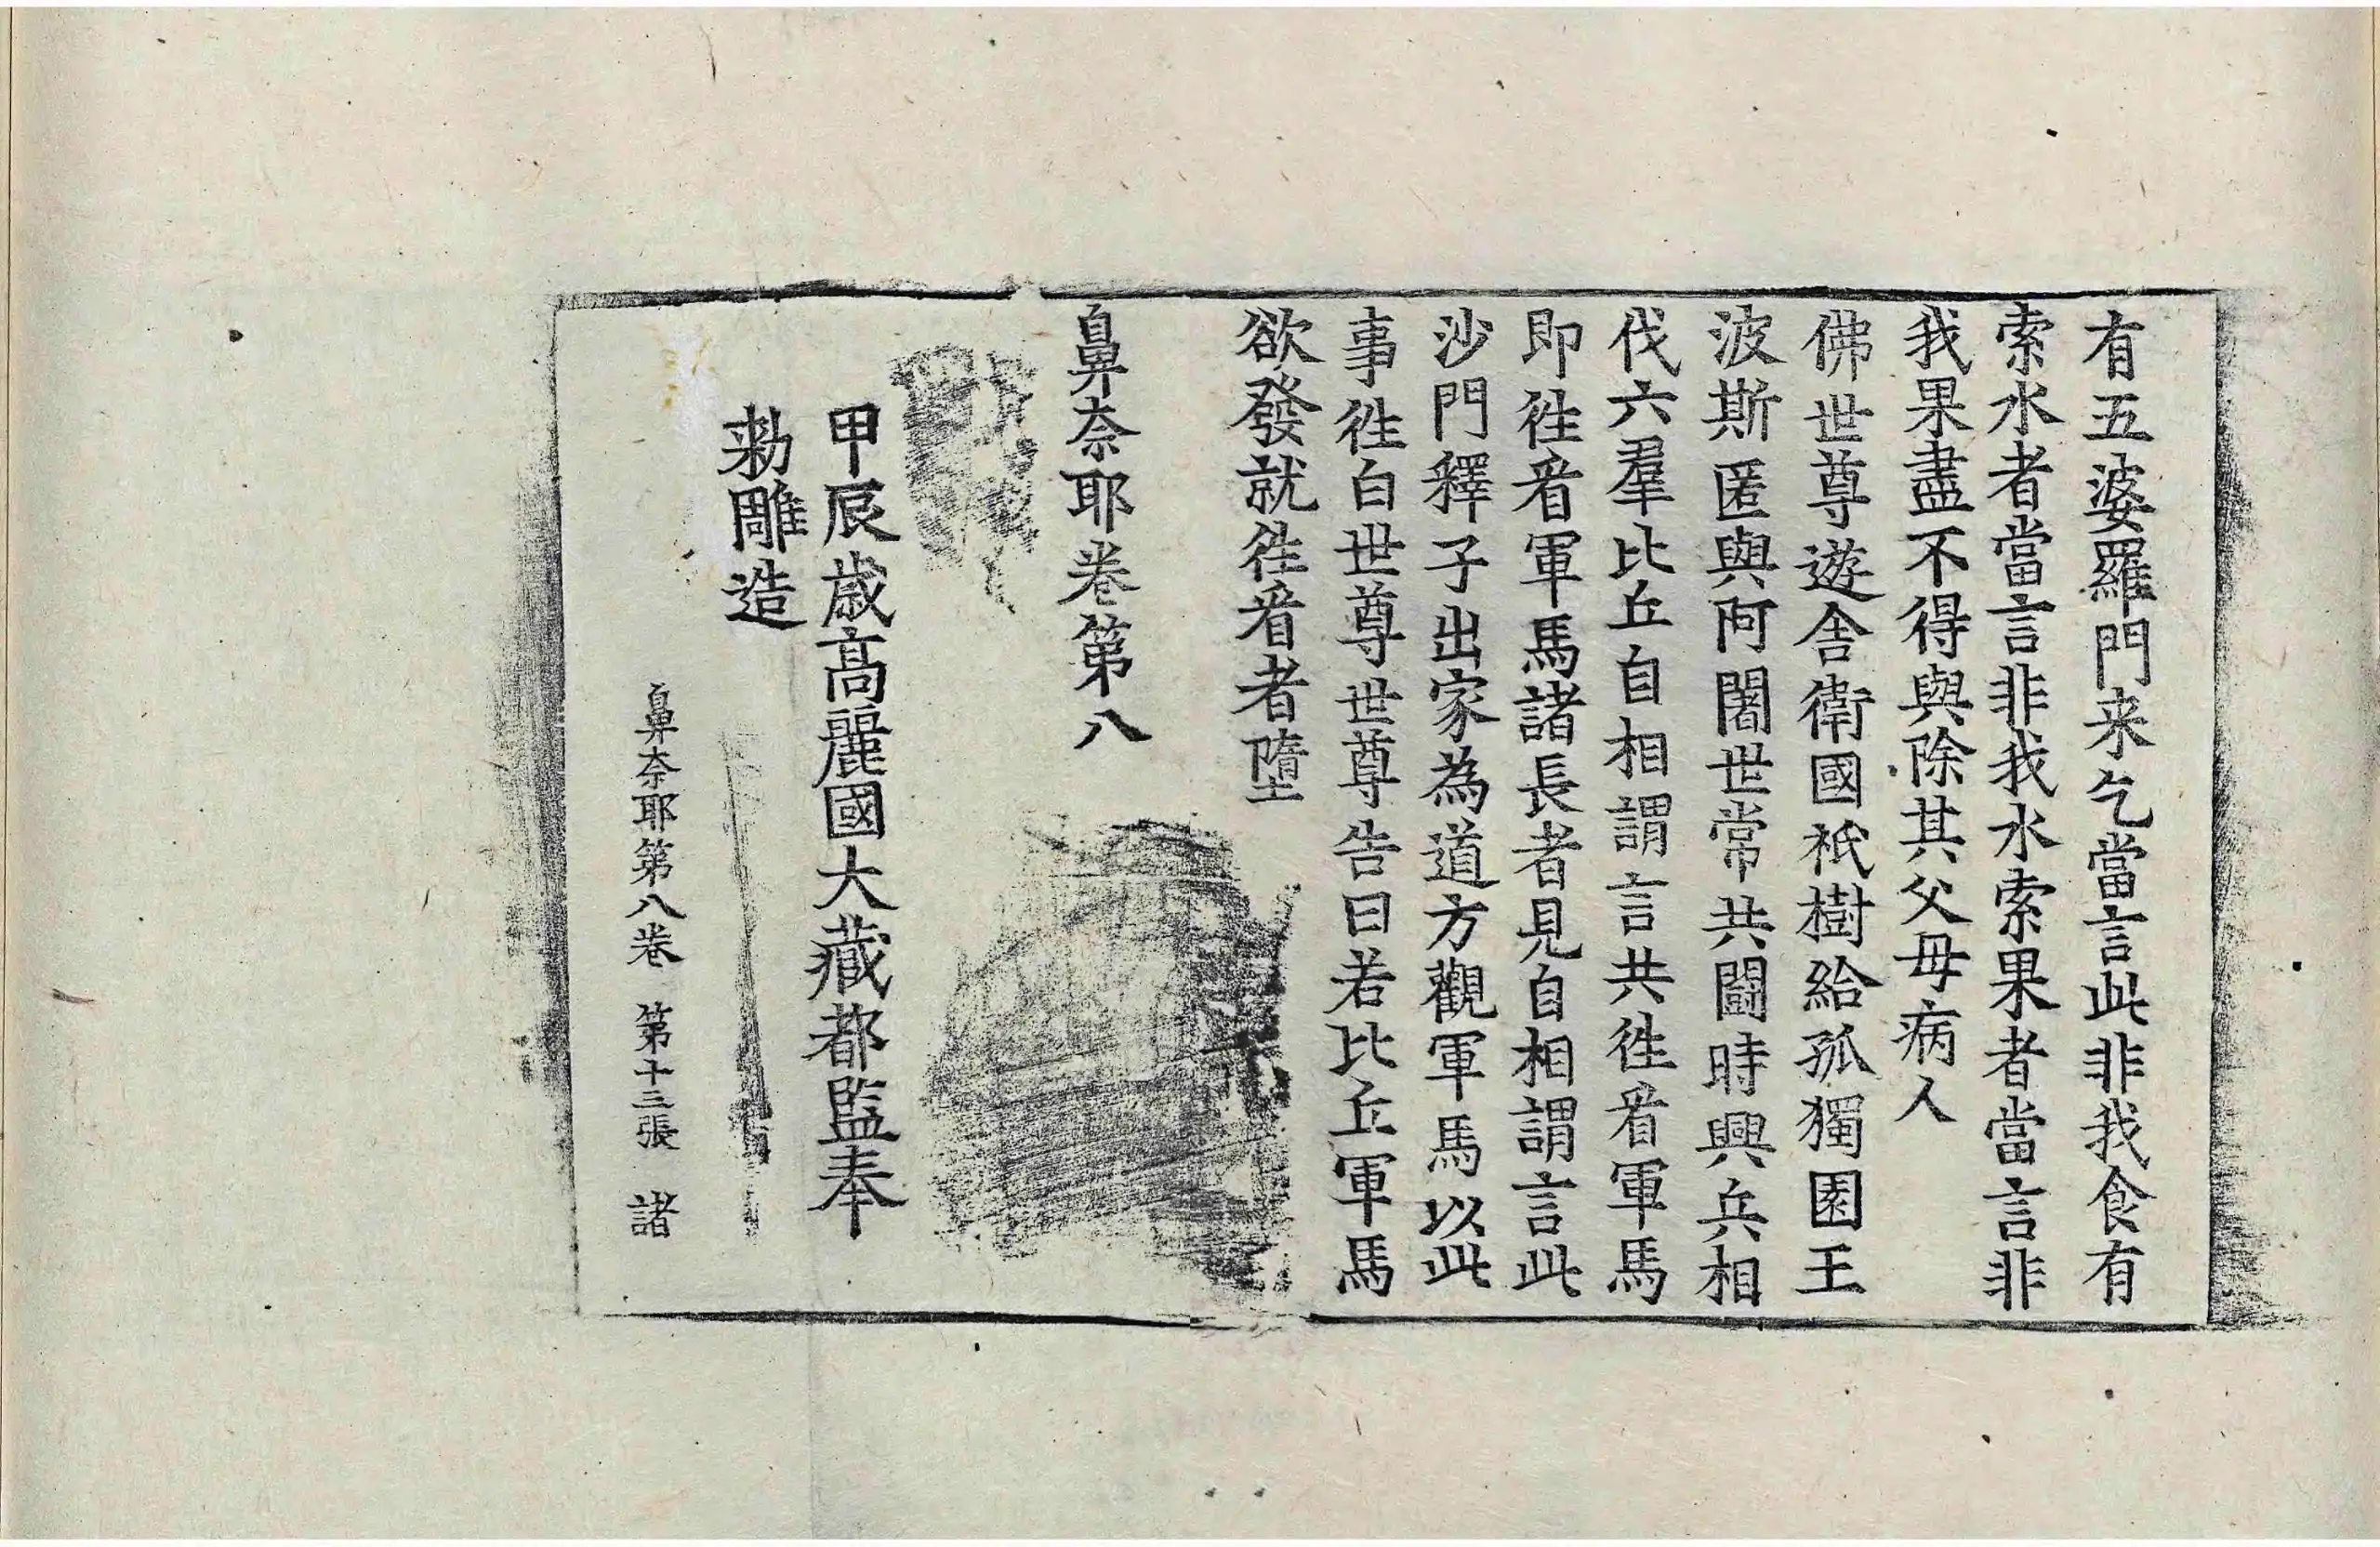 有五婆羅門来乞當言此非我食有
索水者當言非我水索果者當言非
我果盡不得與除其父母病人
佛世尊遊舍衛國祇樹給孤獨園王
波斯匿與阿闍世常共鬪時興兵相
伐六羣比丘自相謂言共徃看軍馬
即徃看軍馬諸長者見自相謂言此
沙門釋子出家為道方觀軍馬以此
事徃白世尊世尊告曰若比丘軍馬
欲發就徃看者墮
鼻奈耶卷第八
甲辰歲高麗國大藏都監奉
勑雕造
鼻奈耶第八卷 第十三張 諸